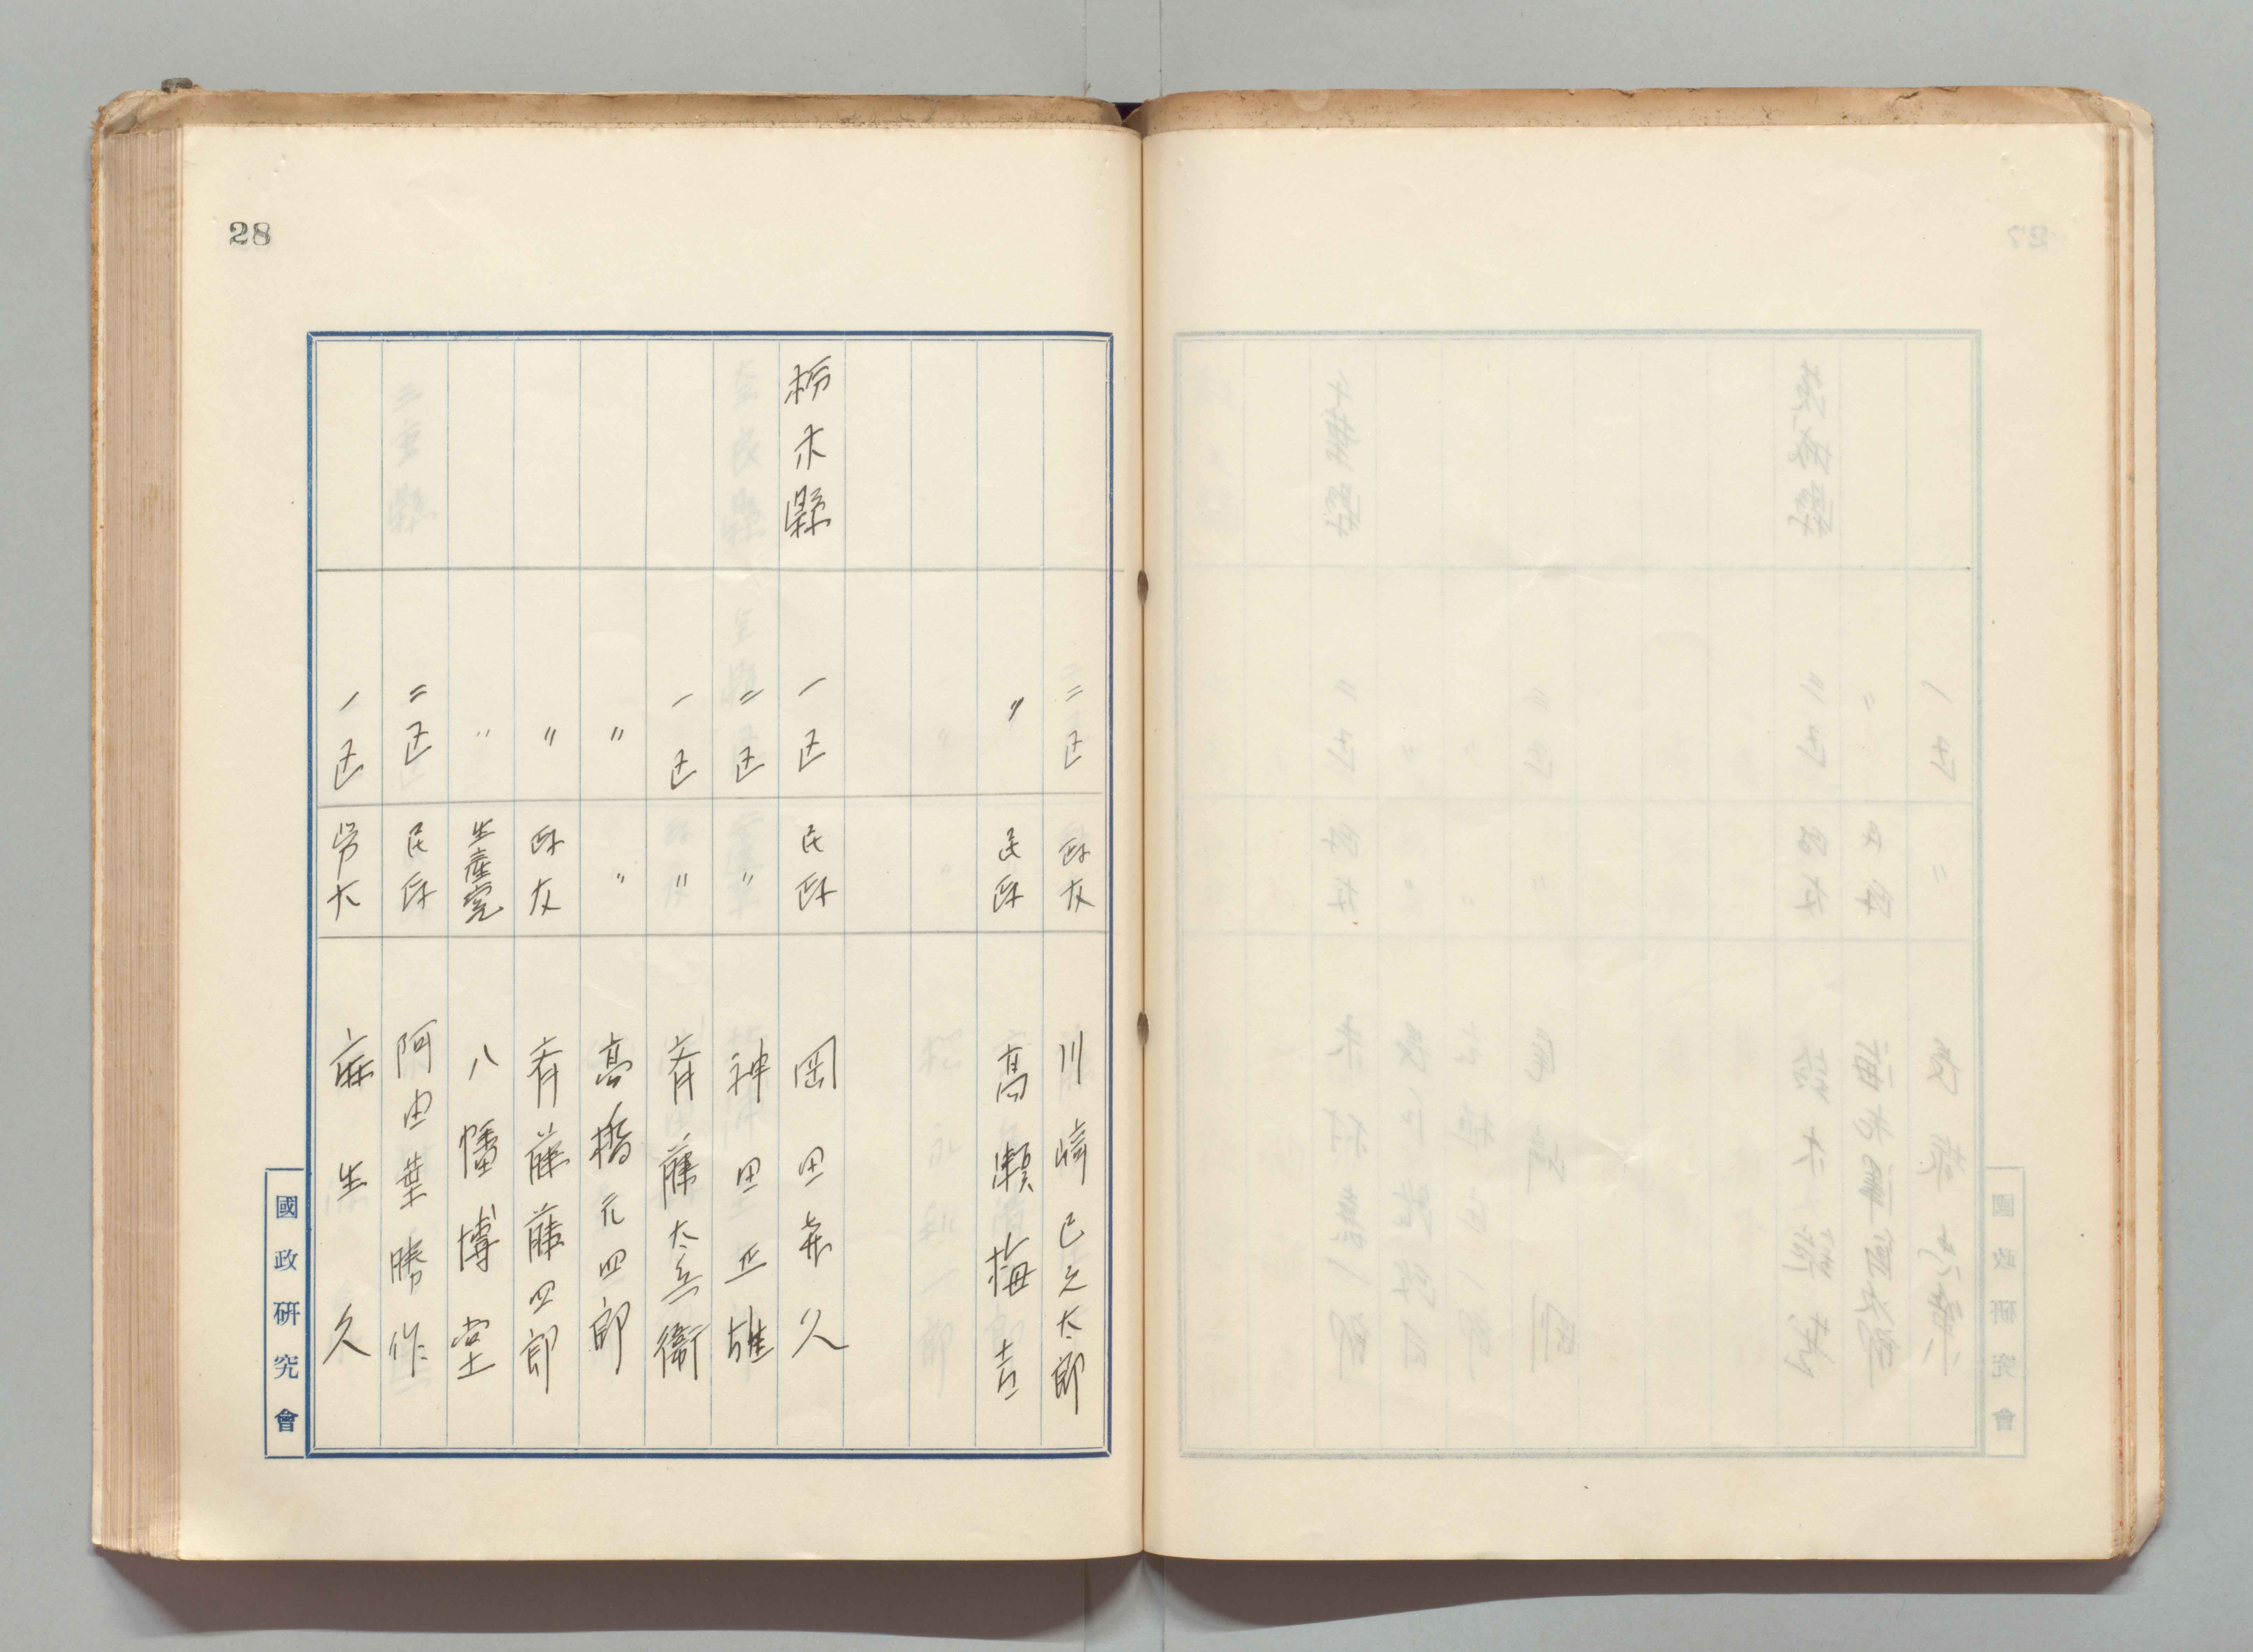 28
二区 政友 川崎巳之太郎
〃 民政 高瀬梅吉
栃木縣 一区 民政 岡田喜久
二区 〃 神田正雄
一区 〃 斉藤太兵衛
〃 〃 高橋元四郎
〃 政友 斉藤藤四郎
〃 生産党 八幡博堂
二区 民政 阿由葉勝作
一区 労大 麻生久
國政研究會